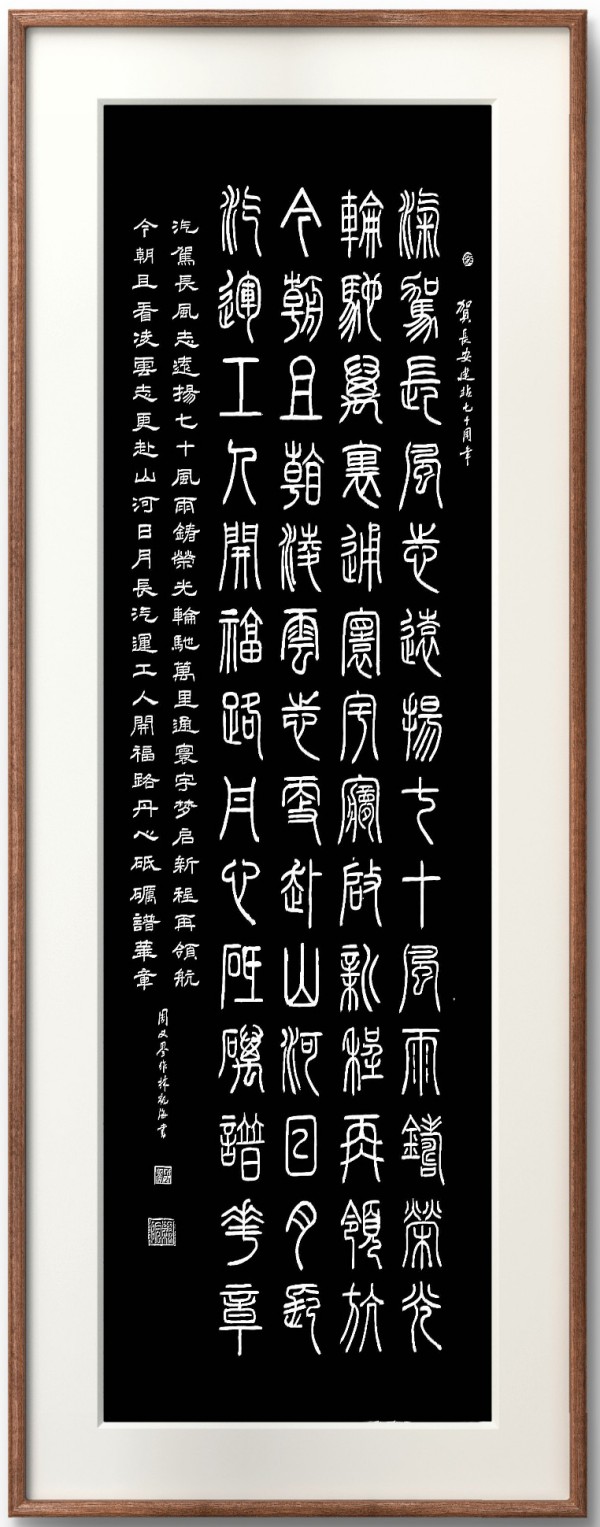 賀長安建站七十周年
汽駕長風志遠揚七十風雨鑄榮光
輪馳萬裏通寰宇夢啟新程再領航
今朝且看淩雲志更赴山河日月長
汽運工人開福路丹心砥礪譜華章
汽駕長風志遠揚七十風雨鑄榮光輪馳萬里通寰宇梦启新程再領航
今朝且看凌雲志更赴山河日月長汽運工人開福路丹心砥礪譜華章